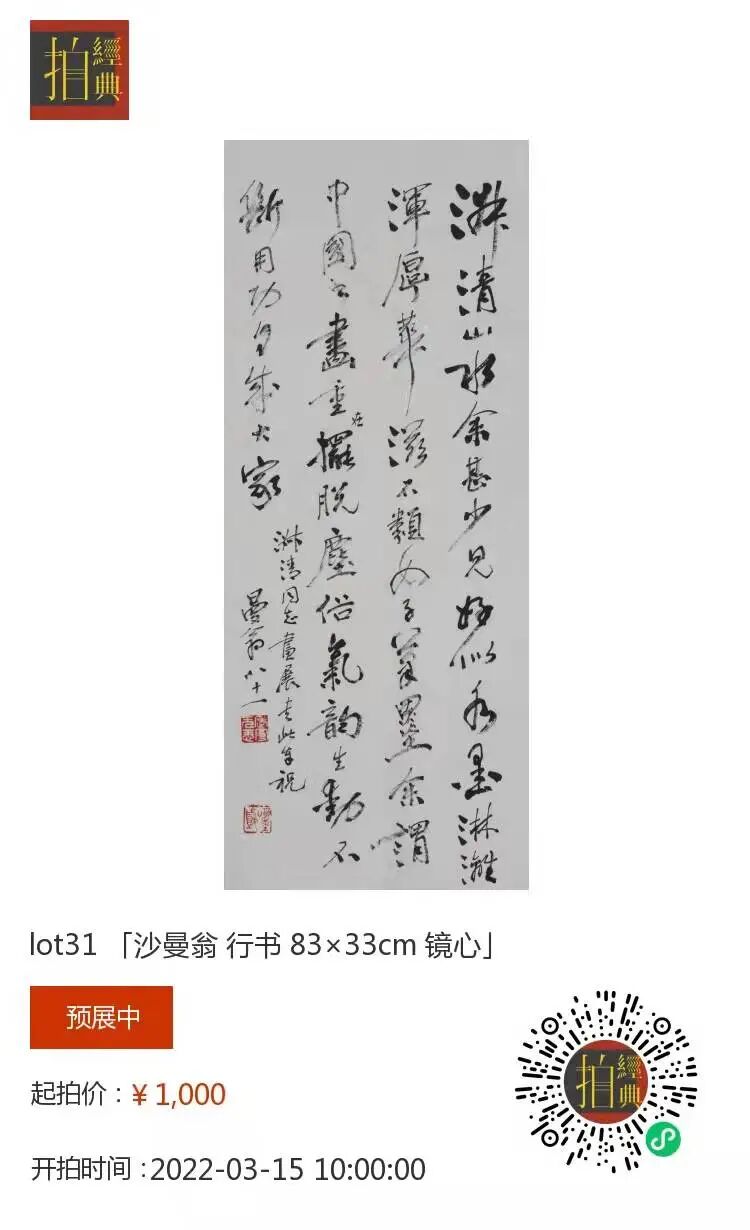 拍
經典
淋清山水余甚少見好似水墨淋漓
渾厚華滋不類女子筆墨余謂
中國書畫重在擺脫塵俗氣韵生動不
斷用功自成大家
淋清同志畫展書此奉祝
曼翁八十一
lot31 「沙曼翁 行书 83×33cm 镜心」
预展中
起拍价：¥ 1,000
开拍时间：2022-03-15 10:00:00
拍
經典